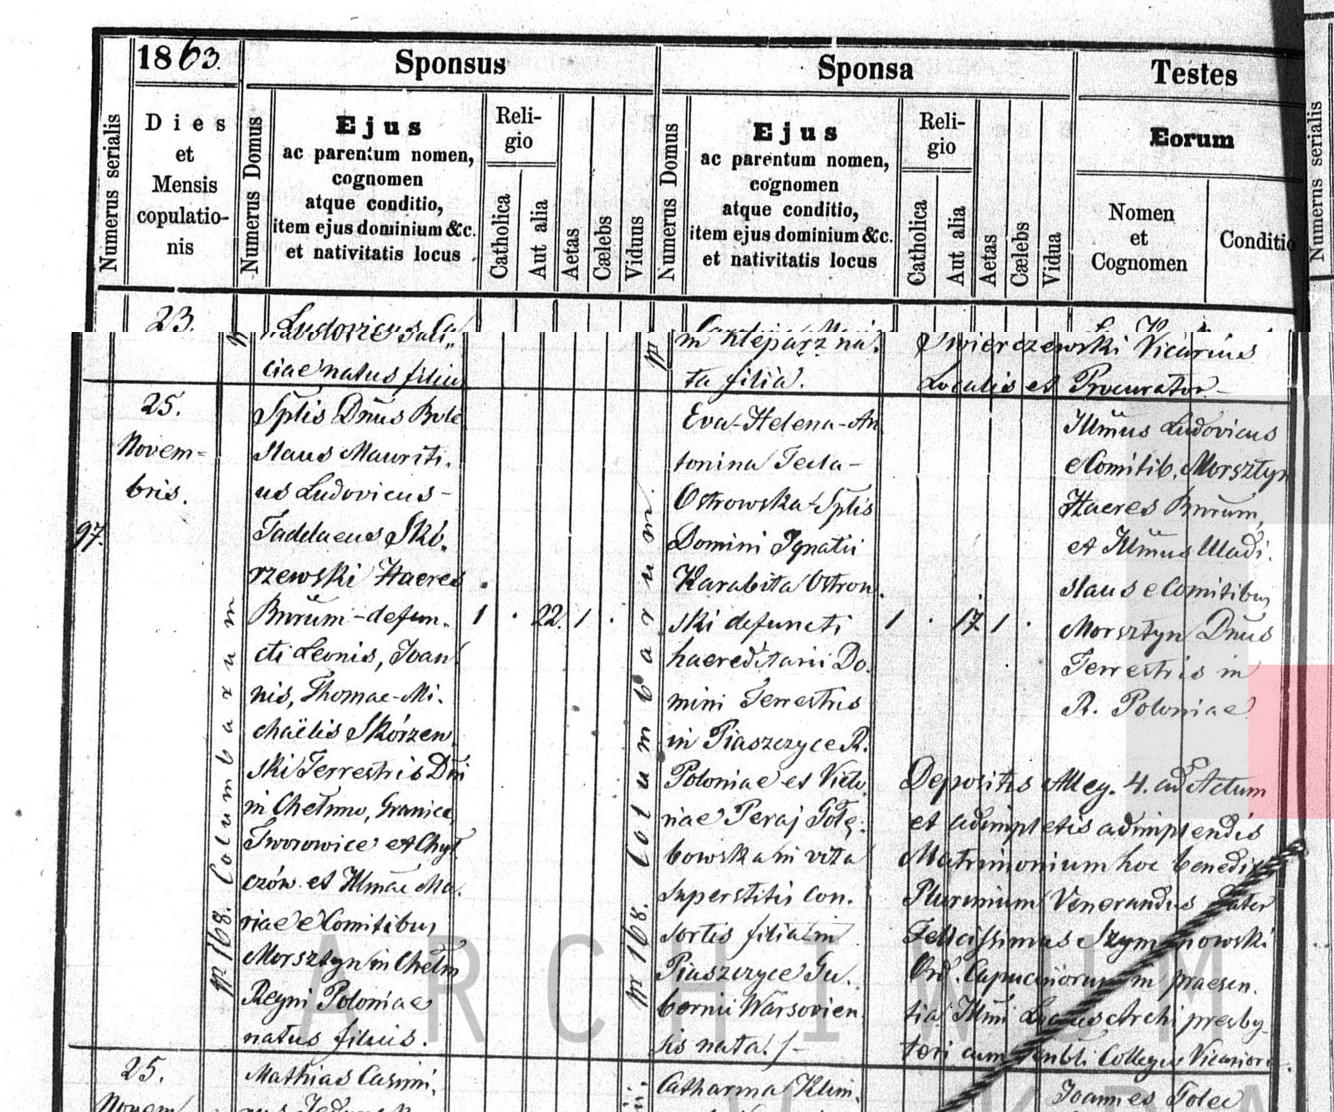 1863.
Sponsus
Sponsa
Testes
Numerus serialis
Dies
et
Mensis
copulatio-
nis
Numerus Domus
Ejus
ac parentum nomen,
cognomen
atque conditio,
item ejus dominium &c.
et nativitatis locus
Reli-
gio
Catholica
Aut alia
Aetas
Cælebs
Viduus
Numerus Domus
Ejus
ac parentum nomen,
cognomen
atque conditio,
item ejus dominium &c.
et nativitatis locus
Reli-
gio
Catholica
Aut alia
Aetas
Cælebs
Vidua
Eorum
Nomen
et
Cognomen
Conditio
Numerus serialis
23.
Ludovicus
ciae natus filius
m Kleparz na.
ta filia.
Swierczewski Vicarius
Localis et Procurator
97.
25.
Novem=
bris.
Nr 168. Columbarum
Splis Dnus Bole
slaus Mauriti.
us Ludovicus-
Taddaeus Skó.
rzewski Haeres
Bnrum-defun.
cti Leonis, Joan
nis, Thomae-Mi.
chaëlis Skórzew
ski Terrestris Dni
in Chełmo, Granice,
Tworowice et Chył
czów et Illmae Ma.
riae e Comitibus
Morsztyn in Chełm
Regni Poloniae
natus filius.
1 . 22. 1 .
Nr 168. Columbarum
Eva-Helena-An
tonina Tecla-
Ostrowska Splis
Domini Ignatii
Korabita Ostrow.
ski defuncti
haereditarii Do.
mini Terrestris
in Piaszczyce R.
Poloniae et Victo
riae Peraj Gołę.
bowska in vita
superstitis con.
sortis filia in
Piaszczyce Gu.
bernii Warsovien
sis nata.
1 . 17 1 .
Illmus Ludovicus
e Comitib. Morsztyn
Haeres Bnrum,
et Illmus Wladi.
slaus e Comitibus
Morsztyn Dnus
Terrestris in
R. Poloniae
Depositis Alleg. 4. ad Actum
et adimpletis adimplendis
Matrimonium hoc benedixit
Plurimum Venerandus Pater
Felicissimus Szymanowski
Ord. Capucinorum in praesen.
tia Illmi Archipresby
teri cum Venbli Collegii Vicarior.
25.
Novem
Mathias Casimi.
Catharina Klim.
Joannes Tolec
ARCHIWUM